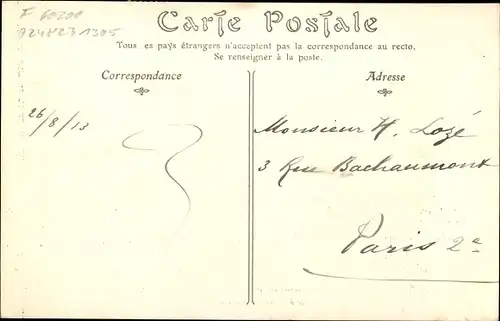 F 60200
Carte Postale
Tous es pays étrangers n'acceptent pas la correspondance au recto.
Se renseigner à la poste.
Correspondance
Adresse
26/8/13
Monsieur H. Lozé
3 Rue Bachaumont
Paris 2e